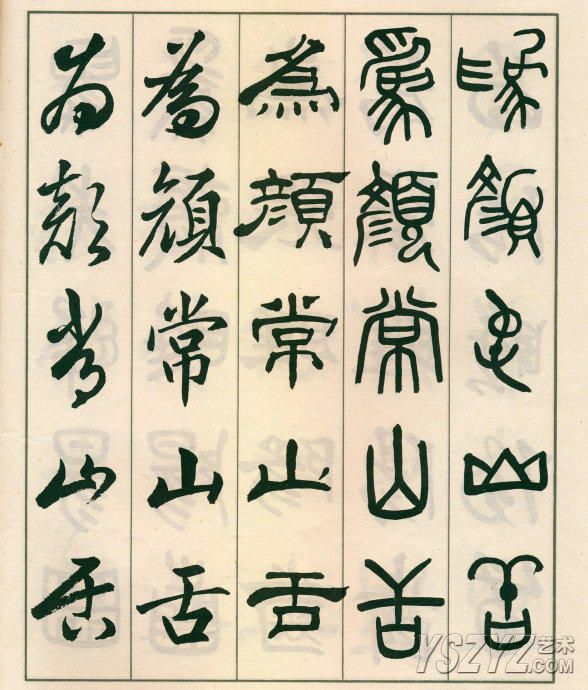 為顏常山舌
為顏常山舌
為顏常山舌
為顏常山舌
為顏常山舌
YSZYZ艺术
.COM